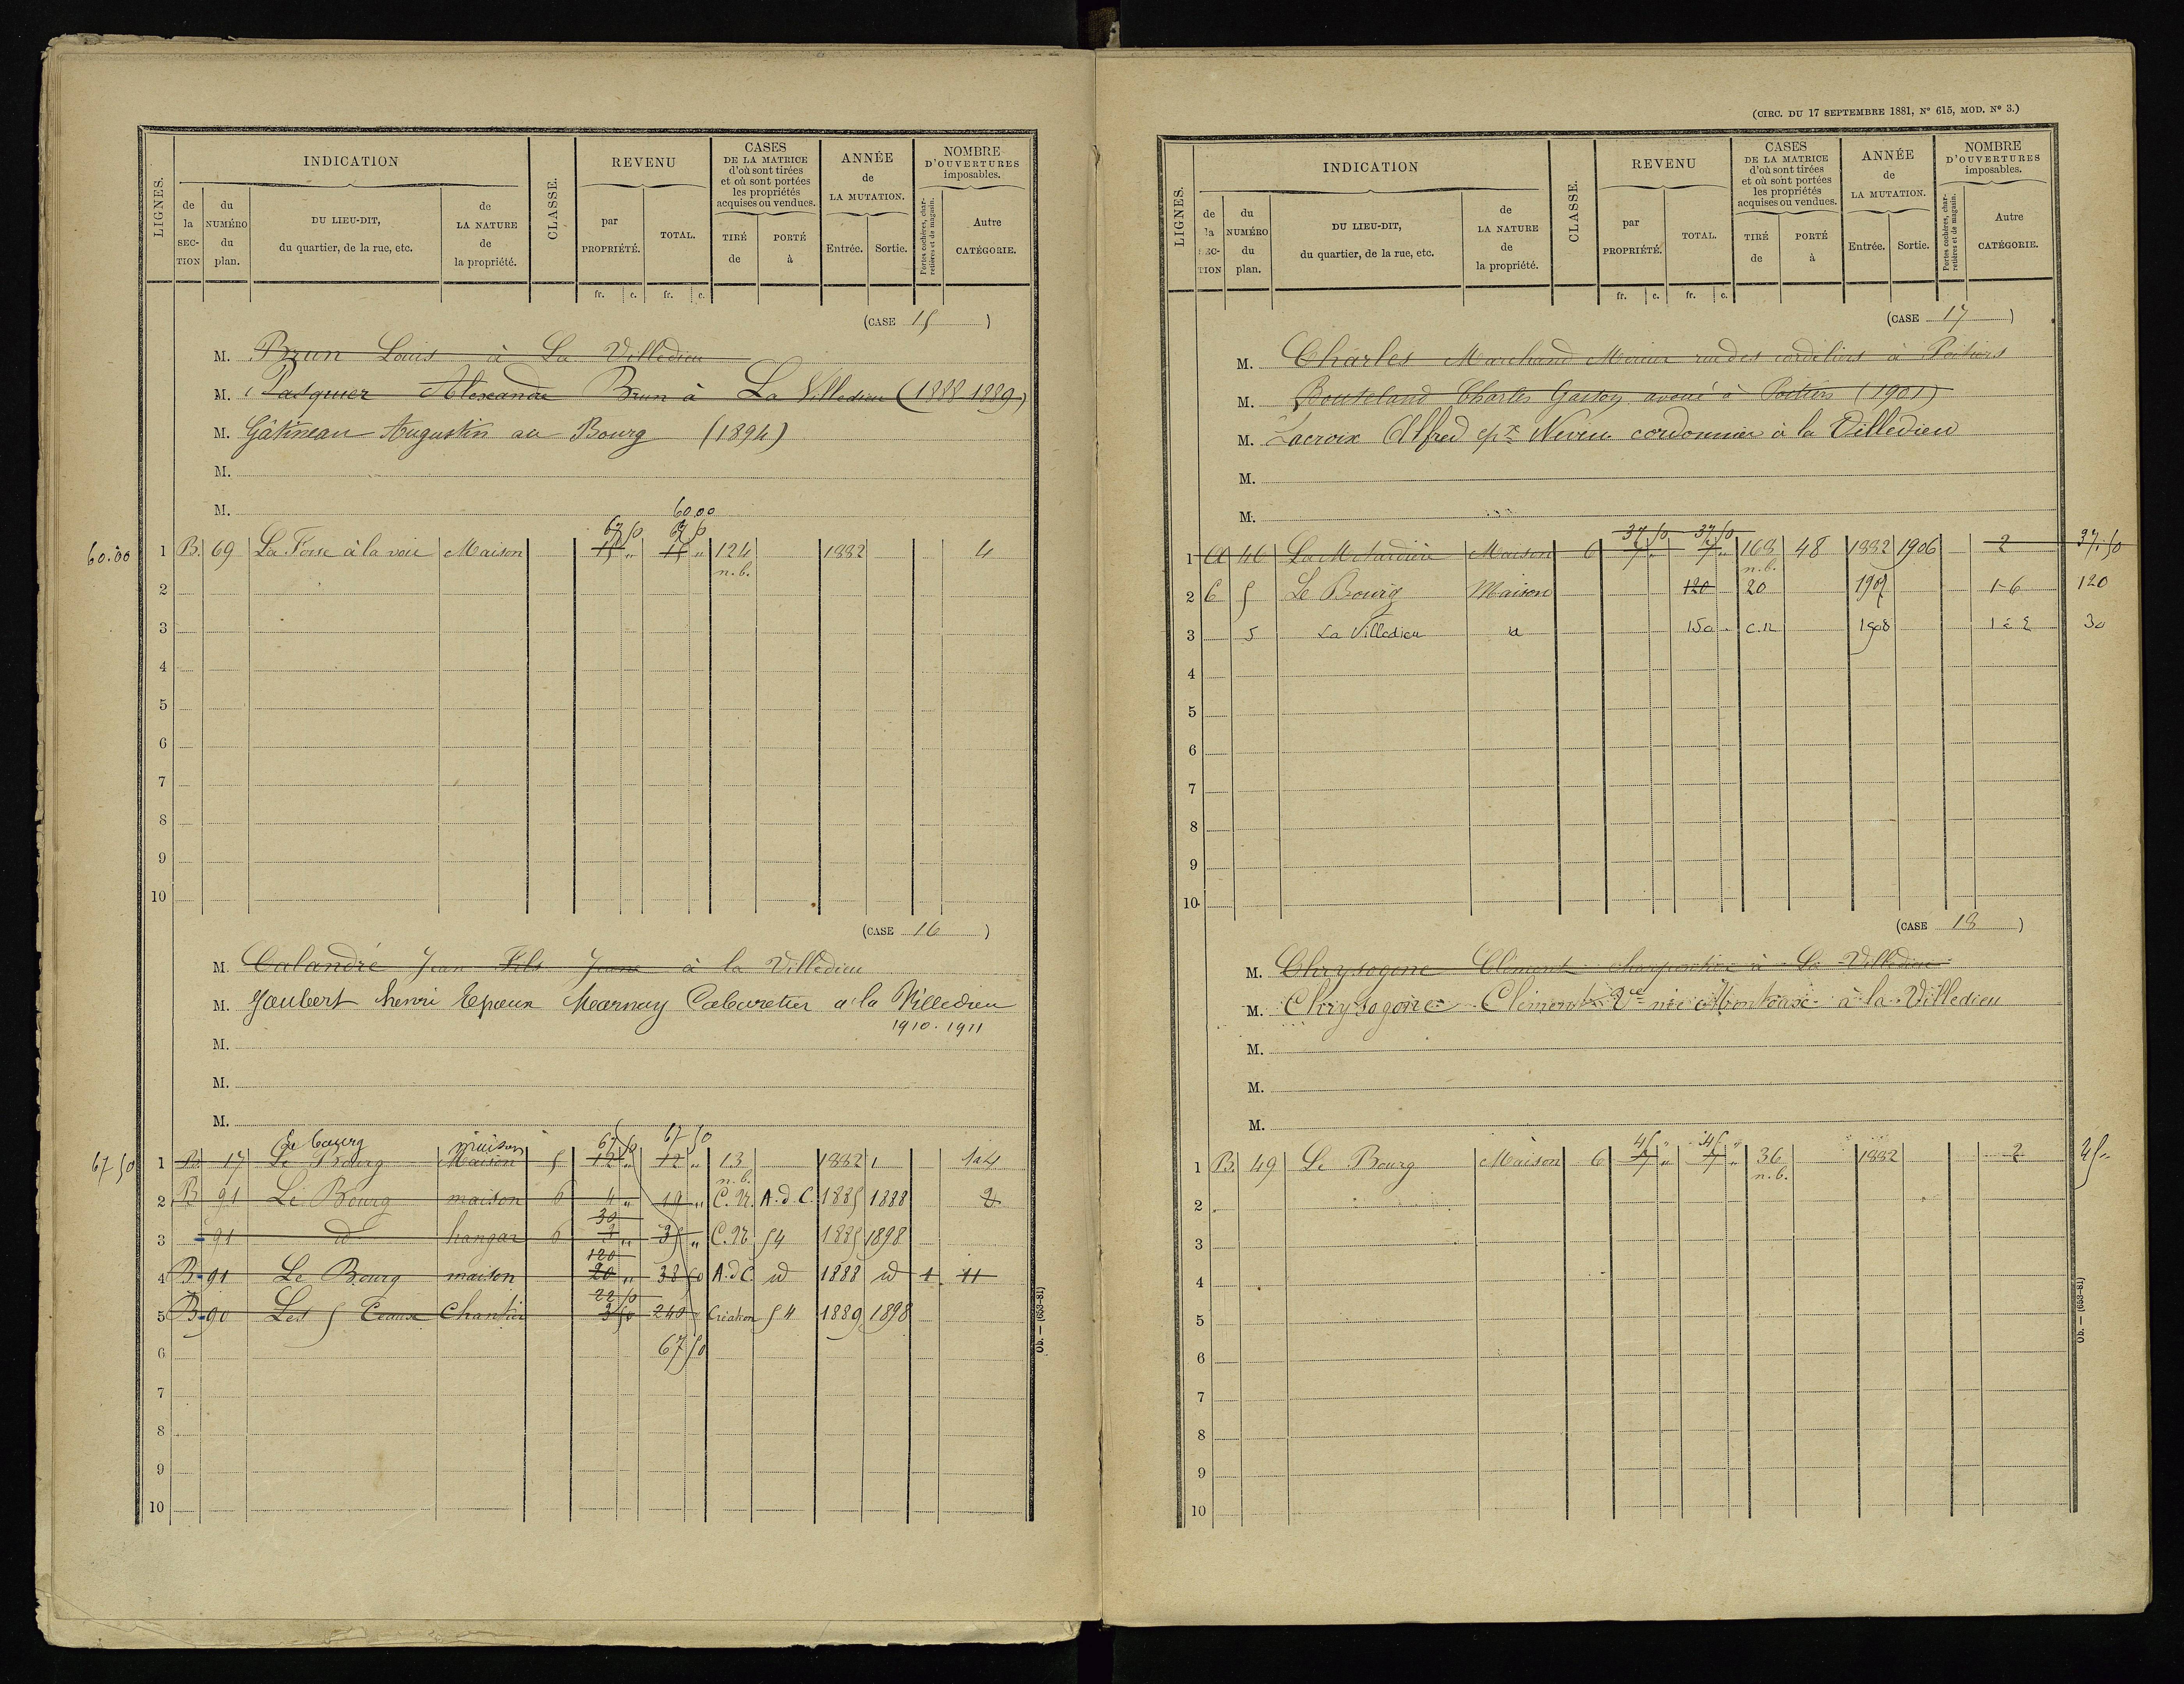 INDICATION
REVENU
CASES
DE LA MATRICE
d'où sont tirées
et où sont portées
les propriétés
acquises ou vendues.
ANNÉE
de
LA MUTATION.
NOMBRE
D'OUVERTURES
imposables.
LIGNES.
de la SECTION
du NUMÉRO du plan.
DU LIEU-DIT,
du quartier, de la rue, etc.
de LA NATURE de la propriété.
CLASSE.
par PROPRIÉTÉ.
TOTAL.
TIRÉ de
PORTÉ à
Entrée.
Sortie.
Portes cochères, charretières et de magasin.
Autre CATÉGORIE.
fr. c. fr. c.
(CASE 15)
M. Brun Louis à La Villedieu
M. Pasquier Alexandre Brun à La Villedieu (1888 1889)
M. Gâtineau Augustin au Bourg (1894)
M.
M.
60.00
67 50 67 50
60.00 1 B. 69 La Fosse à la voie Maison 15 " 15 " 124 1882 4
n.b.
2
3
4
5
6
7
8
9
10
(CASE 16)
M. Calandré Jean Fils Jeune à la Villedieu
M. Jaubert henri Epoeux Marnay Cabaretier a la Villedieu
1910. 1911
M.
M.
M.
Le bourg maison 67 50 67 50
67 50 1 B 17 Le Bourg Maison 5 12 " 12 " 13 1882 1 1a4
n.b.
2 B 91 Le Bourg maison 6 4 " 19 " C.N. A.d.C. 1885 1888 2
30
3 91 id hangar 6 3 " 35 " C.N. 54 1885 1898
120
4 B 91 Le Bourg maison 20 " 38 50 A.d C. id 1888 id 1 11
22 50
5 B 90 Les 5 Ceaux Chantier 3 50 240 Création 54 1889 1898
6 67 50
7
8
9
10
Ob. — (653-81)
(CIRC. DU 17 SEPTEMBRE 1881, N° 615, MOD. N° 3.)
INDICATION
REVENU
CASES
DE LA MATRICE
d'où sont tirées
et où sont portées
les propriétés
acquises ou vendues.
ANNÉE
de
LA MUTATION.
NOMBRE
D'OUVERTURES
imposables.
LIGNES.
de la SECTION
du NUMÉRO du plan.
DU LIEU-DIT,
du quartier, de la rue, etc.
de LA NATURE de la propriété.
CLASSE.
par PROPRIÉTÉ.
TOTAL.
TIRÉ de
PORTÉ à
Entrée.
Sortie.
Portes cochères, charretières et de magasin.
Autre CATÉGORIE.
fr. c. fr. c.
(CASE 17)
M. Charles Marchand rue des cordeliers à Poitiers
M. Charles Gaston avoué à Poitiers (1901)
M. Lacroix Alfred epx Neveu cordonnier à la Villedieu
M.
M.
37 50 37 50
1 A 46 Maison 6 7 " 7 " 168 48 1882 1906 2 37.50
n.b.
2 C 5 Le Bourg Maison 120 20 1907 1-6 120
3 5 La Villedieu id 150 C.N 1908 1 à 2 30
4
5
6
7
8
9
10
(CASE 18)
M. Chrysogone Clément charpentier à La Villedieu
M. Chrysogone Clément Vve née à la Villedieu
M.
M.
M.
45 " 45 "
1 B. 49 Le Bourg Maison 6 7 " 7 " 36 1882 2 45 "
n.b.
2
3
4
5
6
7
8
9
10
Ob. — (653-81)